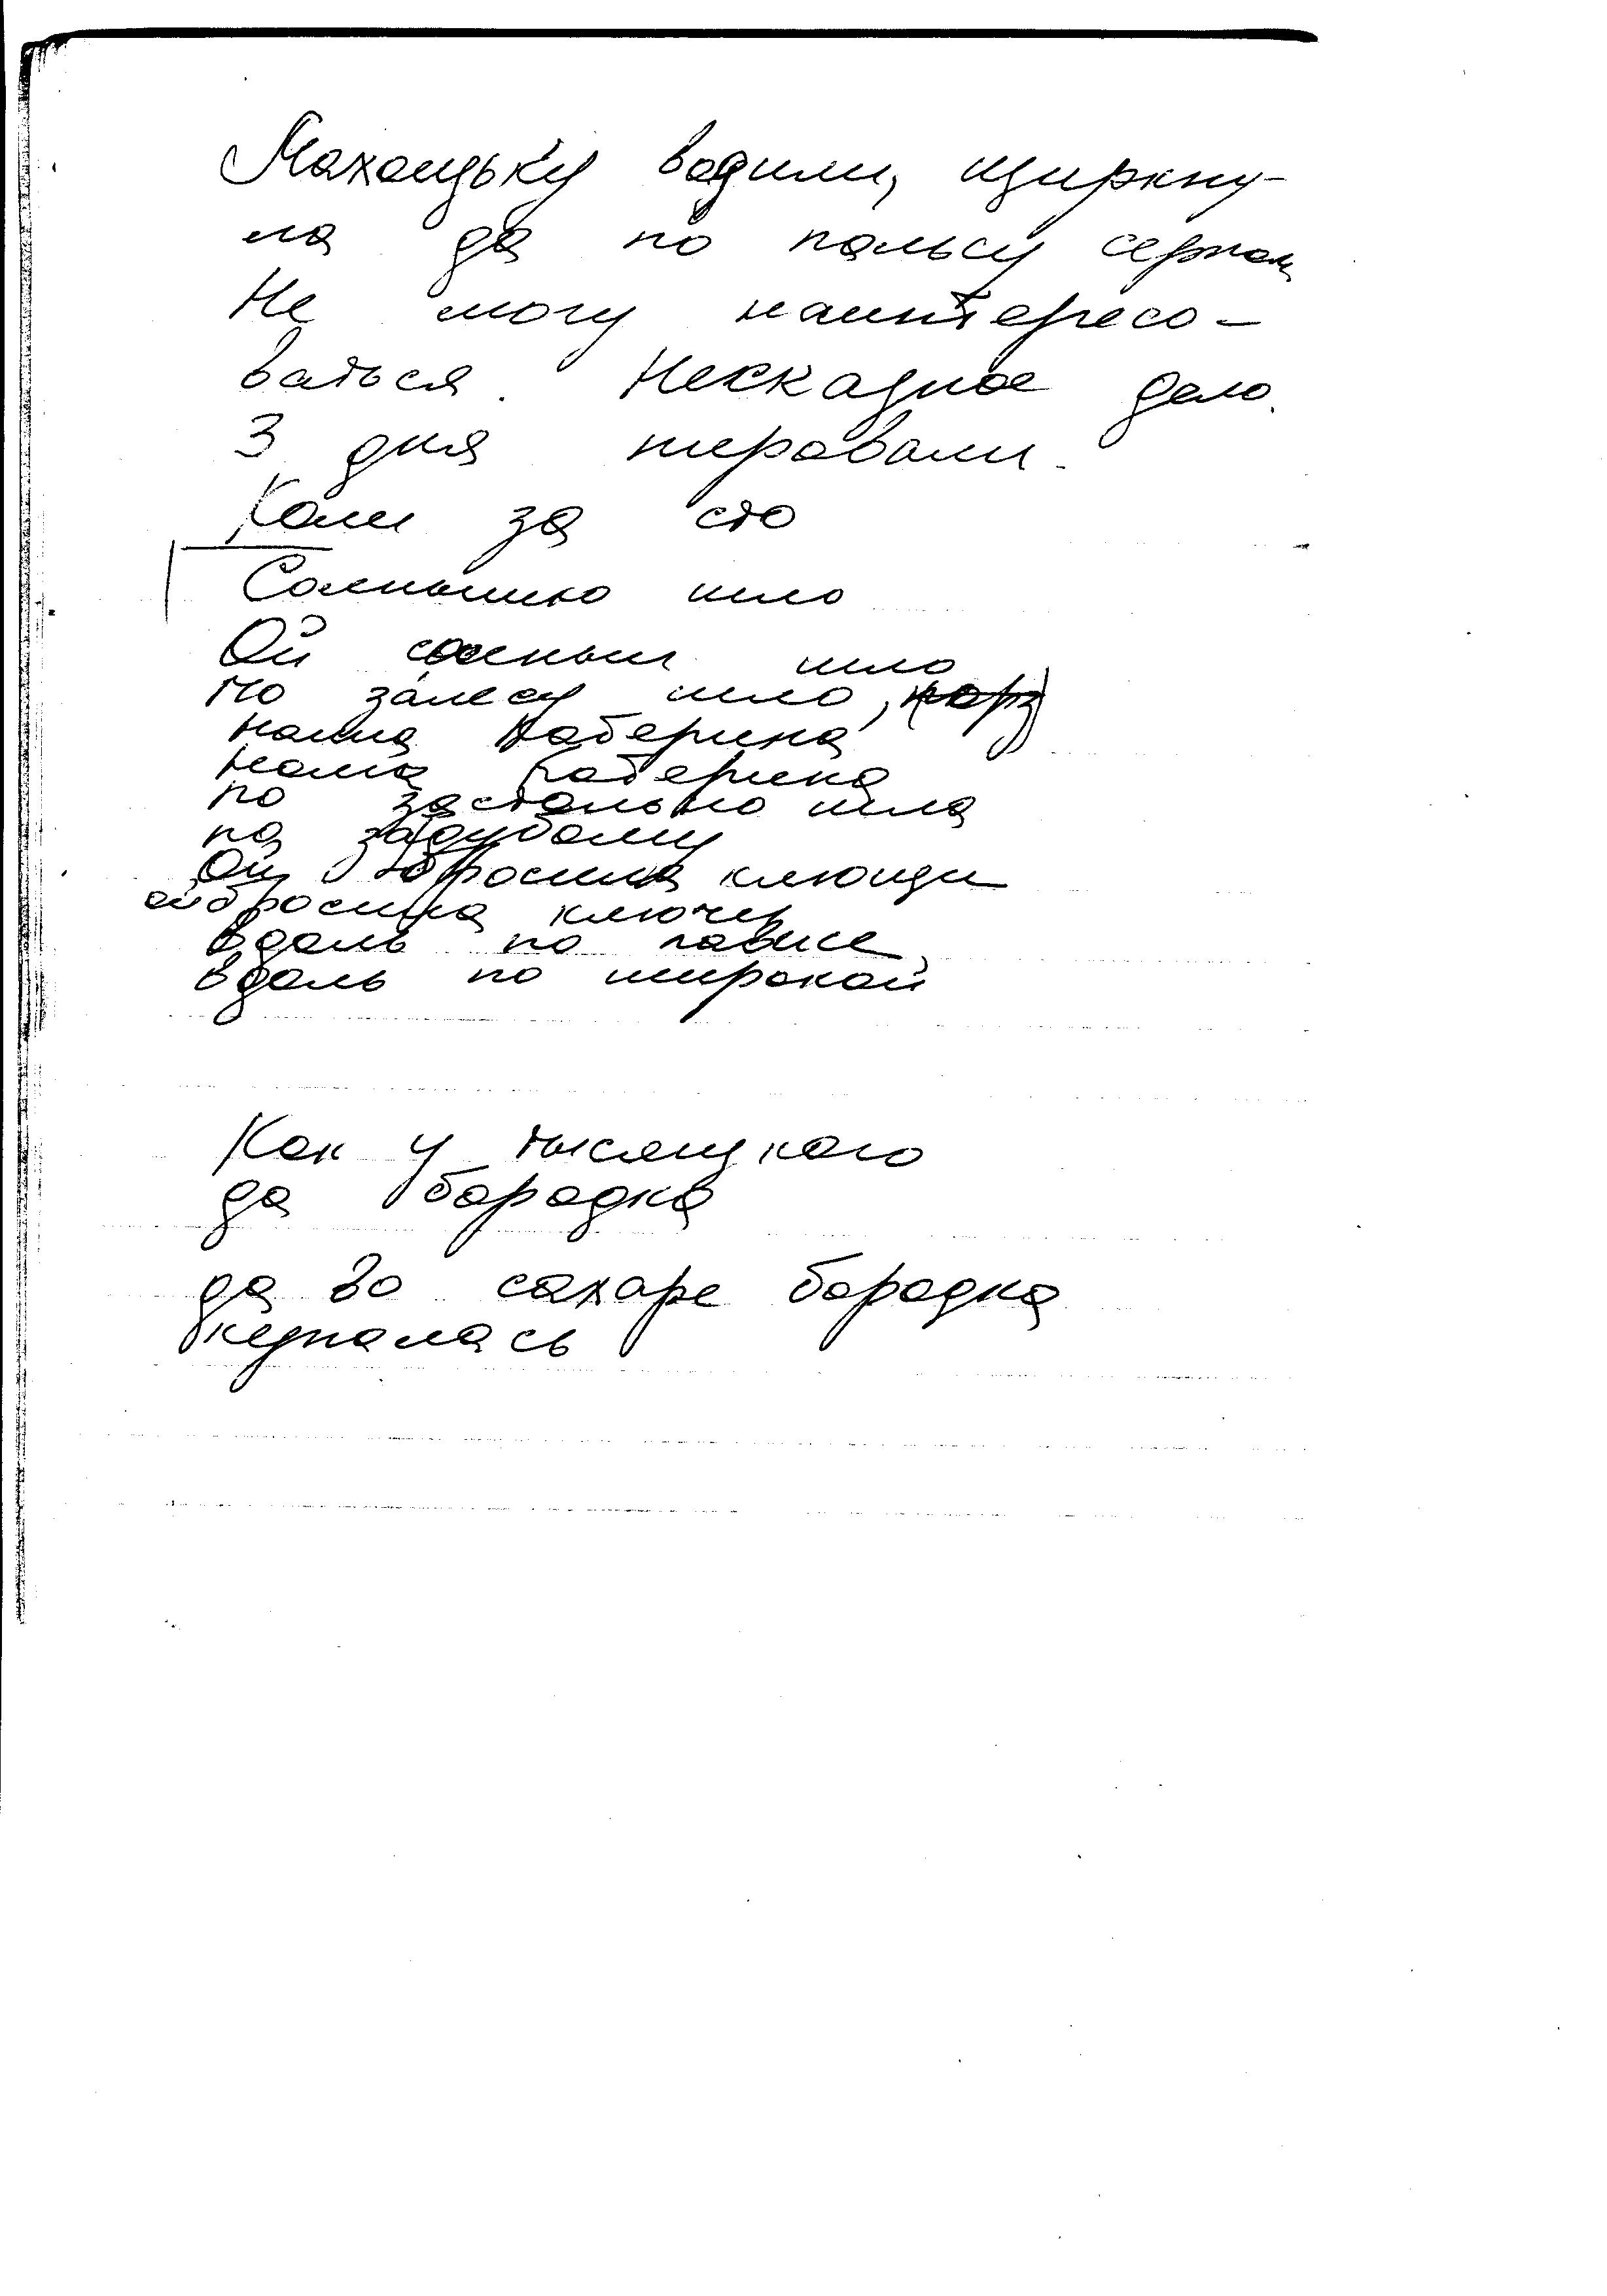 Махоцьку водили, щиркну-
ла да по пальсу серпом
Не могу наинтересо-
ваться. Нескадное дело.
3 дня пировали.
Коли за сто
Солнышко шло
Ой солныш шло
по залесу шло,
наша Катерина
наша Катерина
по застолью шла
по задубому
Ой бросила клюци
ой бросила ключи
вдоль по лавке,
вдоль по широкой
Как у тысяцкого
да бородка
да во сахаре бородка
купалась